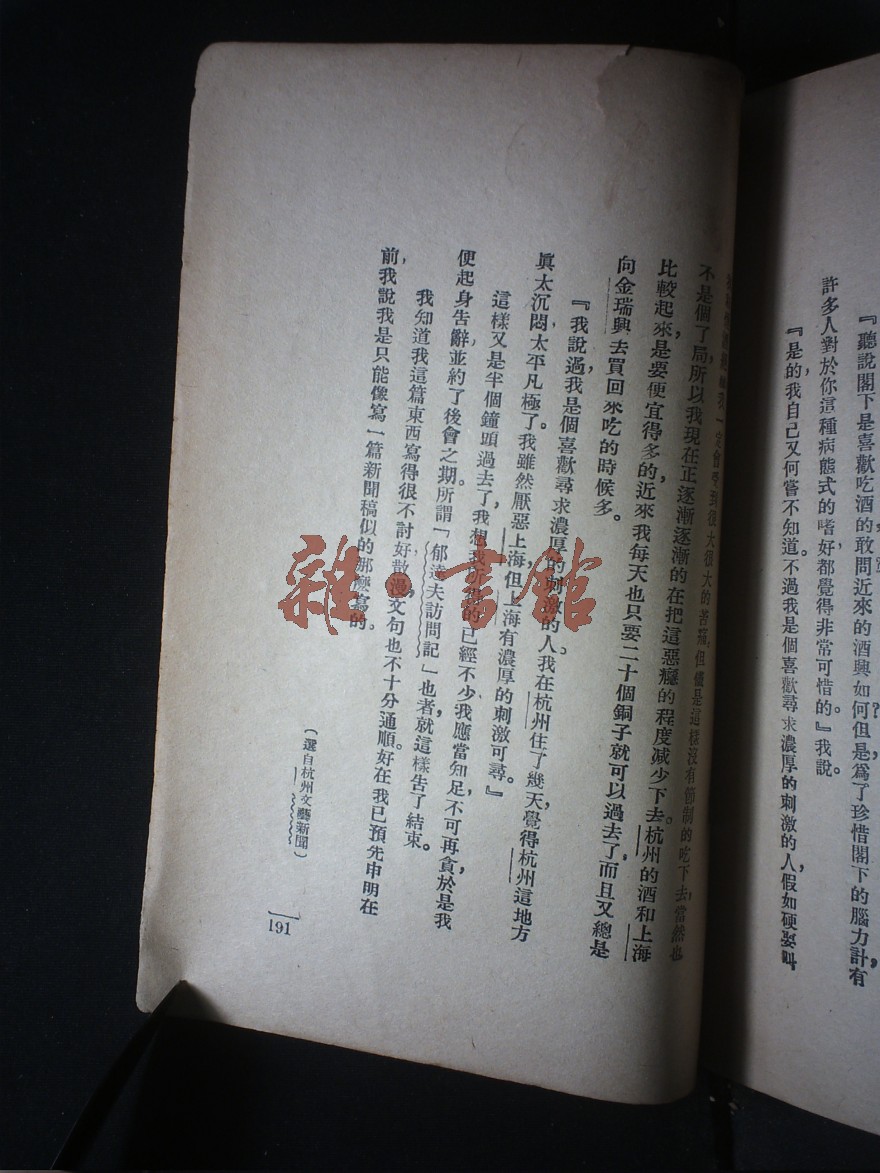 『聽說閣下是喜歡吃酒的,敢問近來的酒興如何?但是,爲了珍惜閣下的腦力計,有
許多人對於你這種病態式的嗜好,都覺得非常可惜的。』我說。
『是的,我自己又何嘗不知道。不過我是個喜歡尋求濃厚的刺激的人,假如硬要叫
一定會受到很大很大的苦痛,但儘是這樣沒有節制的吃下去,當然也
不是個了局,所以我現在正逐漸逐漸的在把這惡癮的程度減少下去。杭州的酒和上海
比較起來,是要便宜得多的,近來我每天也只要二十個銅子就可以過去了,而且又總是
向金瑞興去買回來吃的時候多。
『我說過我是個喜歡尋求濃厚的刺激的人。我在杭州住了幾天,覺得杭州這地方
眞太沉悶,太平凡極了。我雖然厭惡上海,但上海有濃厚的刺激可尋。』
這樣又是半個鐘頭過去了,我想我所得的已經不少,我應當知足,不可再貪,於是我
便起身告辭,並約了後會之期。所謂「郁達夫訪問記」也者,就這樣告了結束。
我知道我這篇東西寫得很不討好,散漫,文句也不十分通順。好在我已預先申明在
前,我說我是只能像寫一篇新聞稿似的那麼寫的。
(選自杭州文藝新聞)
191
雜·書館